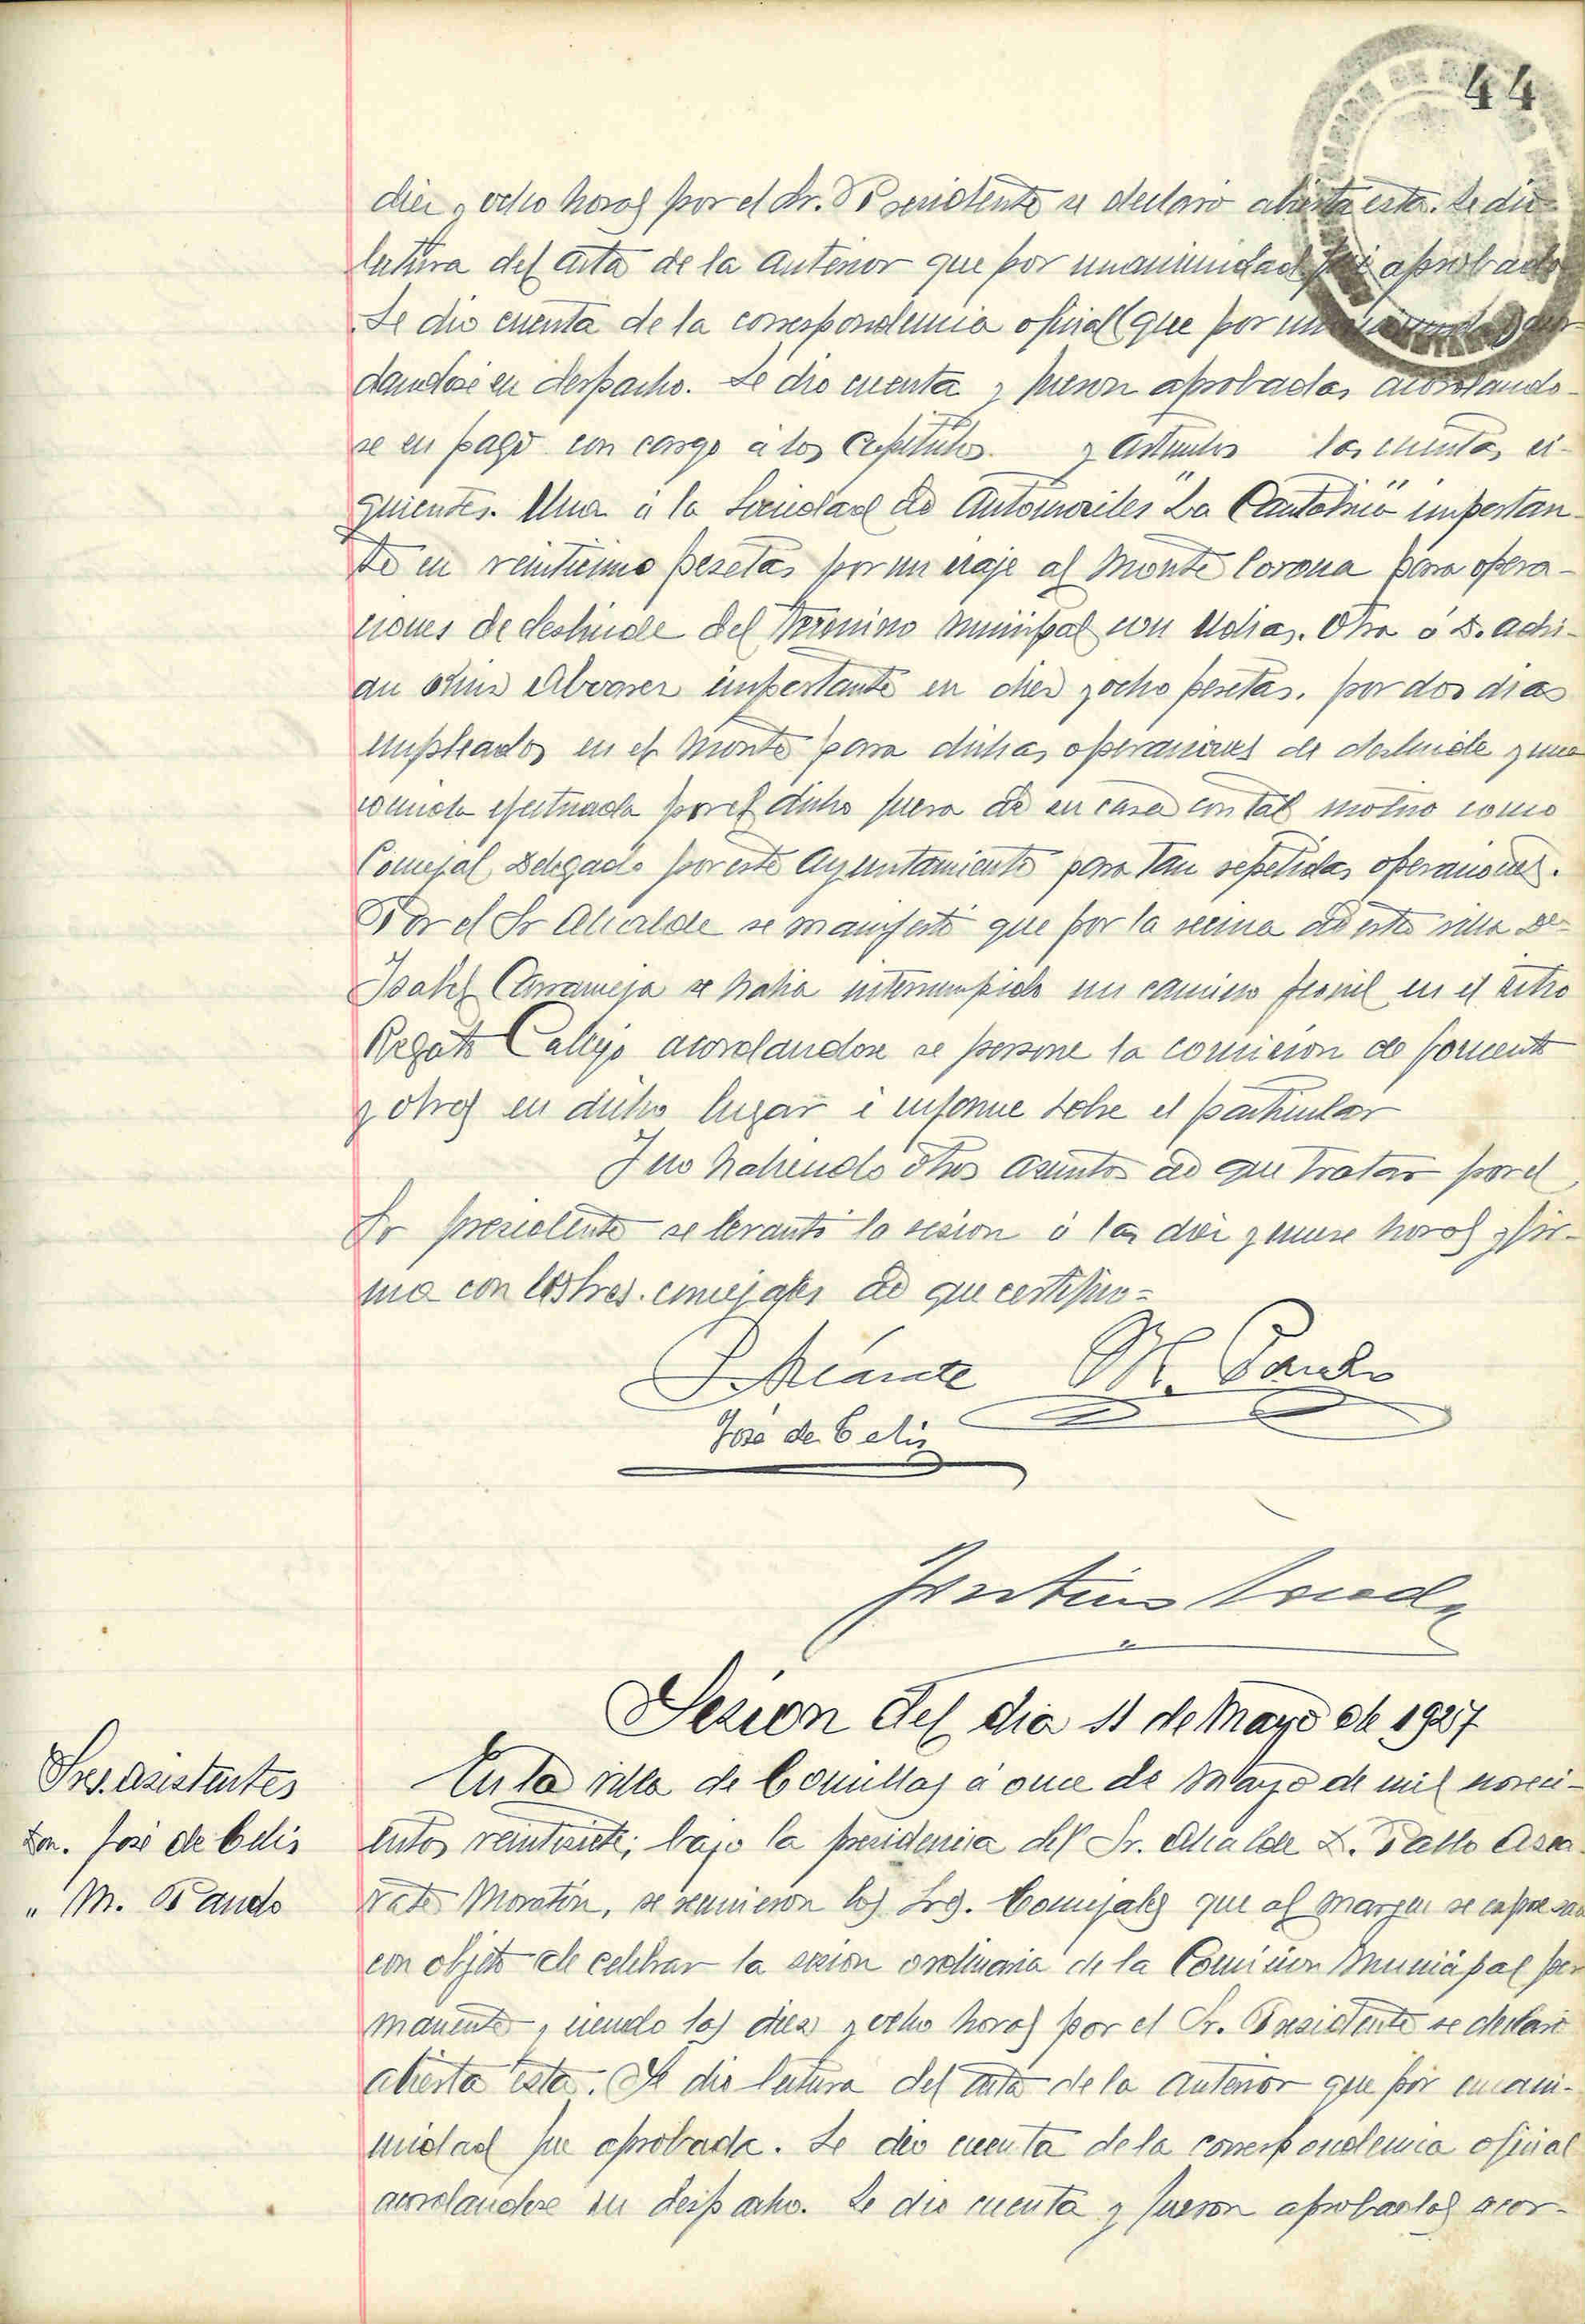 44
diez y ocho horas por el Sr. Presidente se declaro abierta esta. Se dio
lectura del acta de la anterior que por unanimidad fué aprobada
Se dio cuenta de la correspondencia oficial que por
dandose su despacho. Se dio cuenta y fueron aprobadas acordando-
se su pago con cargo á los Capitulos y Articulos las cuentas si-
guientes. Una á la Sociedad de Automoviles "La Cantabria" importan-
te en veinticinco pesetas por un viaje al Monte Corona para opera-
ciones de deslinde del Termino Municipal con Udias. Otra á D. Adri-
an importante en diez y ocho pesetas. por dos dias
empleados en el Monte para dichas operaciones de deslinde y una
comida efectuada por el dicho fuera de su casa con tal motivo como
Concejal Delegado por este Ayuntamiento para tan repetidas operaciones.
Por el Sr Alcalde se manifestó que por la vecina de esta villa Dª
Isabel se habia interrumpido un camino peonil en el sitio
Regato Callejo acordandose se persone la comision de fomento
y obras en dicho lugar é informe sobre el particular
Y no habiendo otros asuntos de que tratar por el
Sr presidente se levantó la sesion á las diez y nueve horas y fir-
ma con los tres. concejales de que certifico=
P. Azcárate M. Pando
José de Celis
Sesion del dia 11 de Mayo de 1927
Sres. Asistentes
Don. José de Celis
" M. Pando
En la villa de Comillas á once de Mayo de mil noveci-
entos veintisiete; bajo la presidencia del Sr. Alcalde D. Pablo Azca-
rate Moratin, se reunieron los Srs. Concejales que al margen se expresan
con objeto de celebrar la sesion ordinaria de la Comision Municipal per
manente y siendo las diez y ocho horas por el Sr. Presidente se declaró
abierta esta. Se dio lectura del acta de la anterior que por unani-
midad fue aprobada. Se dio cuenta de la correspondencia oficial
acordandose su despacho. Se dio cuenta y fueron aprobadas acor-